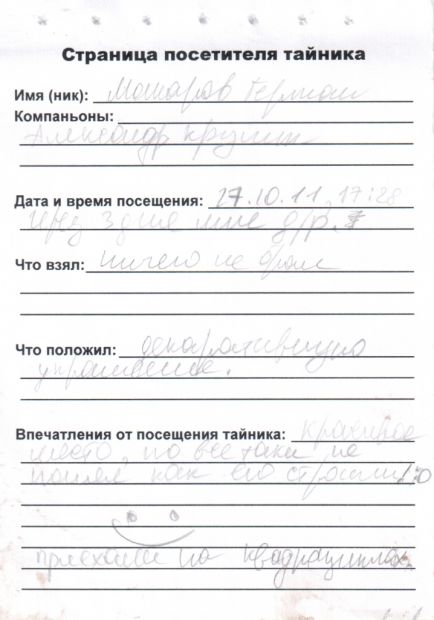 Страница посетителя тайника
Имя (ник): Макаров Герман
Компаньоны:
Александр Крупин
Дата и время посещения: 27.10.11, 17:28
через 3 дня мне д/р.
Что взял: ничего не брал
Что положил: декоративную
украшение.
Впечатления от посещения тайника: Красивое
место, но все таки не
понял как его строили! :O
приехали на квадрациклах